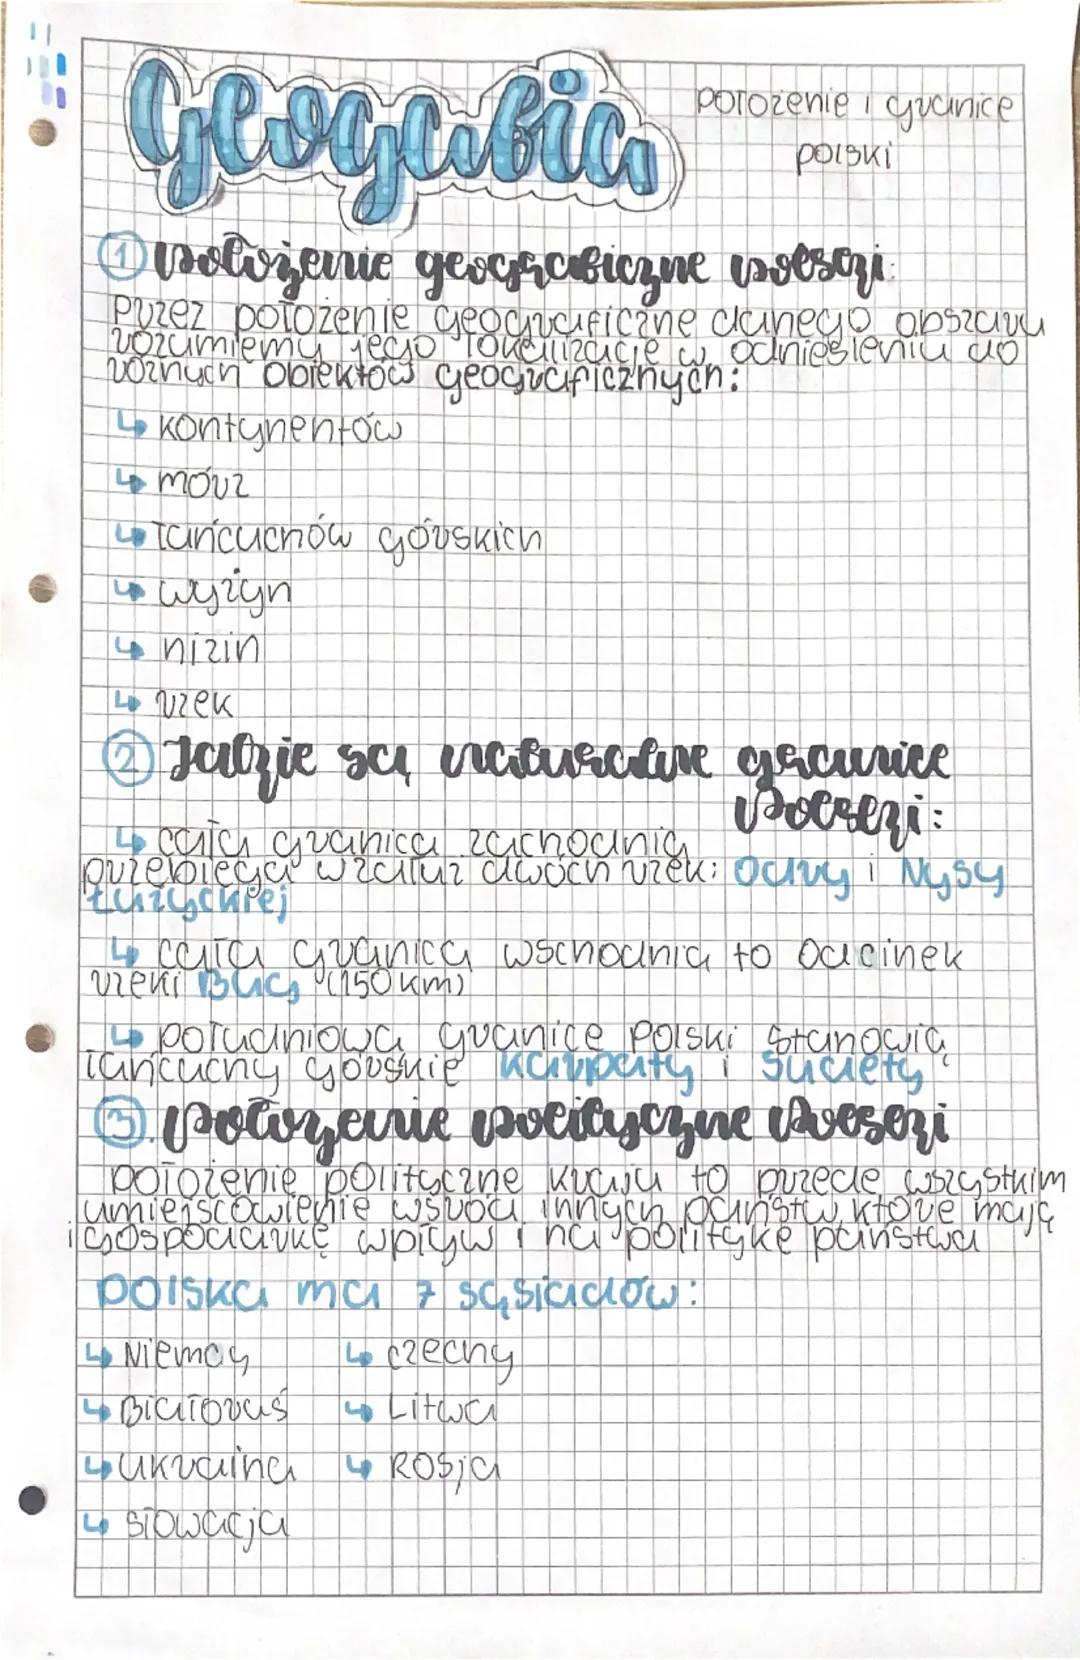 Geografia
Położenie i granice
polski
1 Położenie geograficzne Polski:
Przez położenie geograficzne danego obszaru
rozumiemy jego lokalizację w odniesieniu do
różnych obiektów geograficznych:
↳ kontynentów
↳ mórz
↳ łańcuchów górskich
↳ wyżyn
↳ nizin
↳ rzek
2 Jakie są naturalne granice
Polski:
↳ cała granica zachodnia
przebiega wzdłuż dwóch rzek: Odry i Nysy
Łużyckiej
↳ cała granica wschodnia to odcinek
rzeki Bug (150 km)
↳ południową granice Polski stanowią
łańcuchy górskie Karpaty i Sudety
3. Położenie polityczne Polski
Położenie polityczne kraju to przede wszystkim
umiejscowienie wśród innych państw które mają
wpływ i na politykę państwa
i gospodarkę
POLSKA ma 7 sąsiadów:
↳ Niemcy ↳ Czechy
↳ Białoruś ↳ Litwa
↳ Ukraina ↳ Rosja
↳ Słowacja